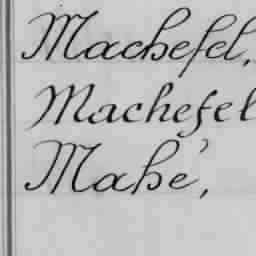 Machefel,
Machefel
Mahé,